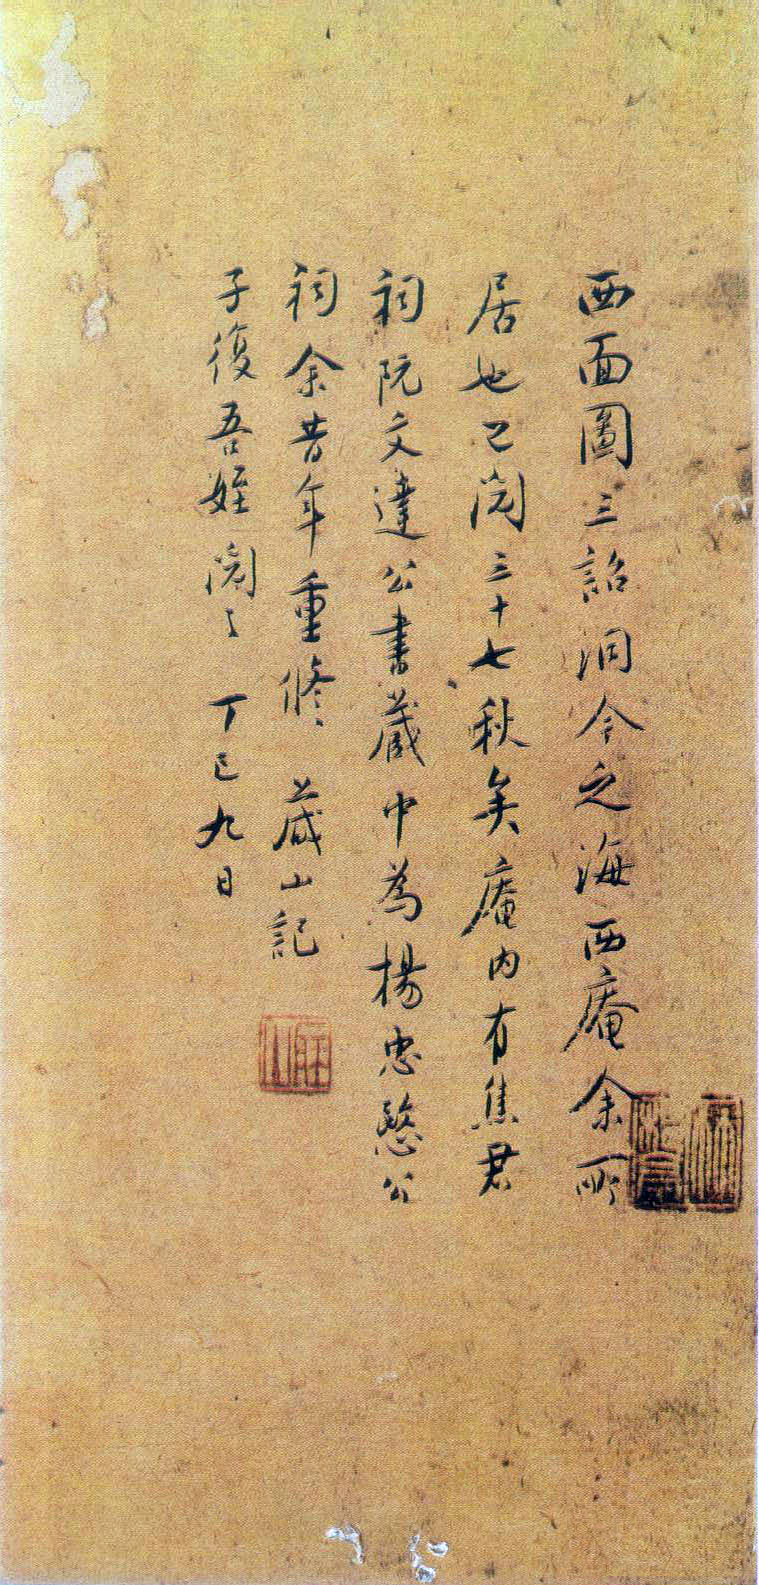 西面圖三詔洞今之海西庵余所
居也已閱三十七秋矣庵内有焦君
祠阮文達公書藏中為楊忠愍公
祠余昔年重修 蕺山記
子復吾姪閱之 丁巳九日